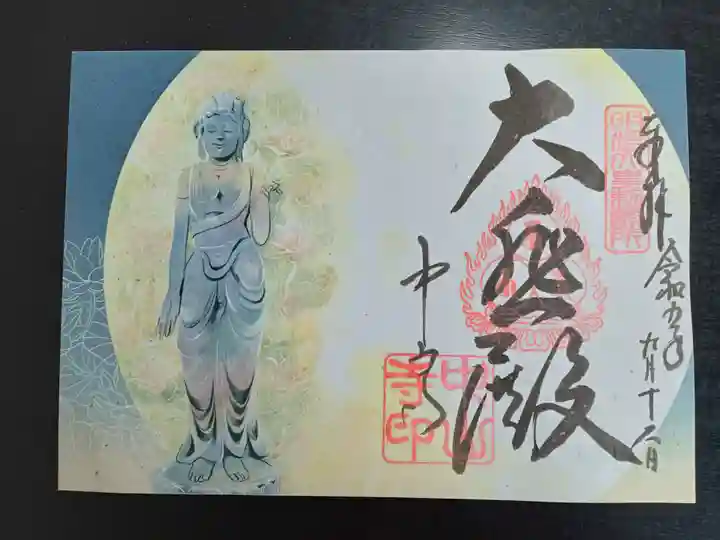 奉拝
令和五年
九月十二日
大悲殿
中山寺
中山
寺印